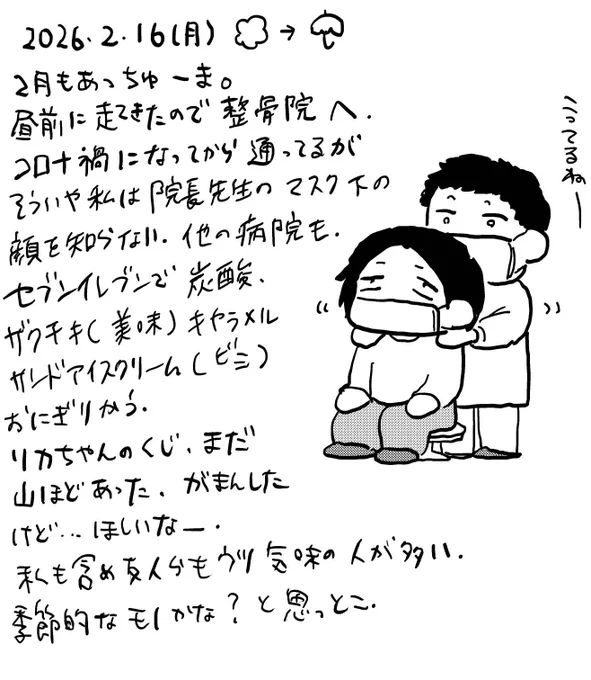 2026.2.16(月) →
2月もあっちゅーま。
昼前に走てきたので整骨院へ.
コロナ禍になってから通ってるが
そういや私は院長先生のマスク下の
顔を知らない.他の病院も.
セブンイレブンで炭酸、
ザクチキ(美味)キャラメル
サンドアイスクリーム(ビミ)
おにぎりかう.
リカちゃんのくじ、まだ
山ほどあった、がまんした
けど…ほしいなー.
私も含め友人らもウツ気味の人が多い.
季節的なモノかな?と思っとこ.
こってるねー